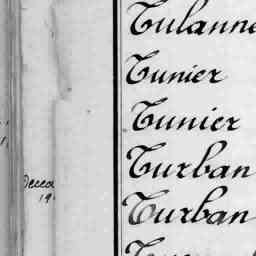 Tulanne
Tunier
Tunier
Turban
Turban